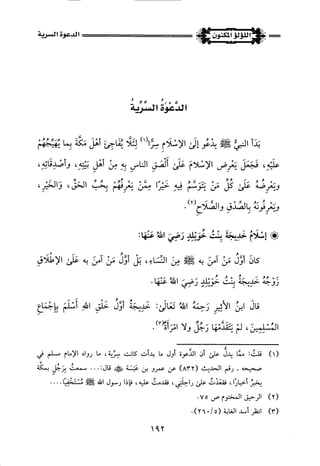 اللؤلؤ المكنون
الدعوة السرية
الدَّعْوَةُ السِّرِّيَّةُ
بَدَأَ النبيُّ ﷺ يَدْعُو إلَى الْإِسْلَامِ سِرًّا(١) لِئَلَّا يُفَاجِئَ أَهْلَ مَكَّةَ بِمَا يُهَيِّجُهُمْ
عَلَيْهِ، فَجَعَلَ يَعْرِضُ الْإِسْلَامَ عَلَى أَلْصَقِ الناسِ بِهِ مِنْ أَهْلِ بَيْتِهِ، وأصْدِقَائِهِ،
ويَعْرِضُهُ عَلَى كُلِّ مَنْ يَتَوَسَّمُ فِيهِ خَيْرًا مِمَّنْ يَعْرِفُهُمْ بِحُبِّ الحَقِّ، وَالخَيْرِ،
ويَعْرِفُونَهُ بِالصِّدْقِ والصَّلَاحِ(٢).
إسْلَامُ خَدِيجَةَ بِنْتِ خُوَيْلِدٍ رَضِيَ اللهُ عَنْهَا:
كانَ أوَّلَ مَنْ آمَنَ بِهِ ﷺ مِنَ النِّسَاءِ، بَلْ أَوَّلَ مَنْ آمَنَ بِهِ عَلَى الْإِطْلَاقِ
زَوْجُهُ خَدِيجَةُ بِنْتُ خُوَيْلِدٍ رَضِيَ اللهُ عَنْهَا.
قَالَ ابنُ الأَثِيرِ رَحِمَهُ اللهُ تَعَالَى: خَدِيجَةُ أَوَّلُ خَلْقِ اللهِ أَسْلَمَ بِإِجْمَاعِ
المُسْلِمِينَ، لَمْ يَتَقَدَّمْهَا رَجُلٌ ولَا امْرَأَةٌ(٣).
(١) قلتُ: ممَّا يدلُّ على أن الدعوة أول ما بدأت كانت سِرِّية، ما رواه الإمام مسلم في
صحيحه ـ رقم الحديث (٨٣٢) عن عمرو بن عَبَسَة ﷺ قال:... سمعتُ بِرَجُلٍ بمكَّة
يخبر أخبارًا، فقعَدْتُ على راحِلَتِي، فقدمتُ عليه، فإذا رسول الله ﷺ مُسْتَخْفِيًا....
(٢) الرحيق المختوم ص ٧٥.
(٣) انظر أسد الغابة (٢٦٠/٥).
١٩٢